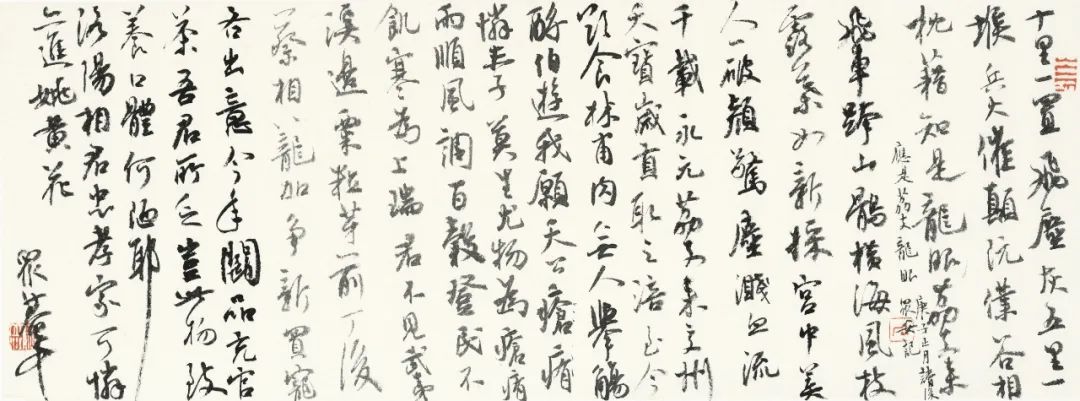 十里一置飛塵灰五里一
堠兵火催顛阬僕谷相
枕藉知是龍眼荔支來
應是荔支龍眼
庚子正月
記
飛車跨山鶻橫海風枝
露葉如新採宮中美
人一破顏驚塵濺血流
千載永元荔支來交州
天寶歲貢取之涪至今
欲食林甫肉無人舉觴
酹伯游我願天公瘡痏
憐赤子莫生尤物為瘡痏
雨順風調百穀登民不
飢寒為上瑞君不見武夷
溪邊粟粒芽前丁後
蔡相籠加爭新買寵
各出意今年鬭品充官
茶吾君所乏豈此物致
養口體何陋耶
洛陽相君忠孝家可憐
亦進姚黃花